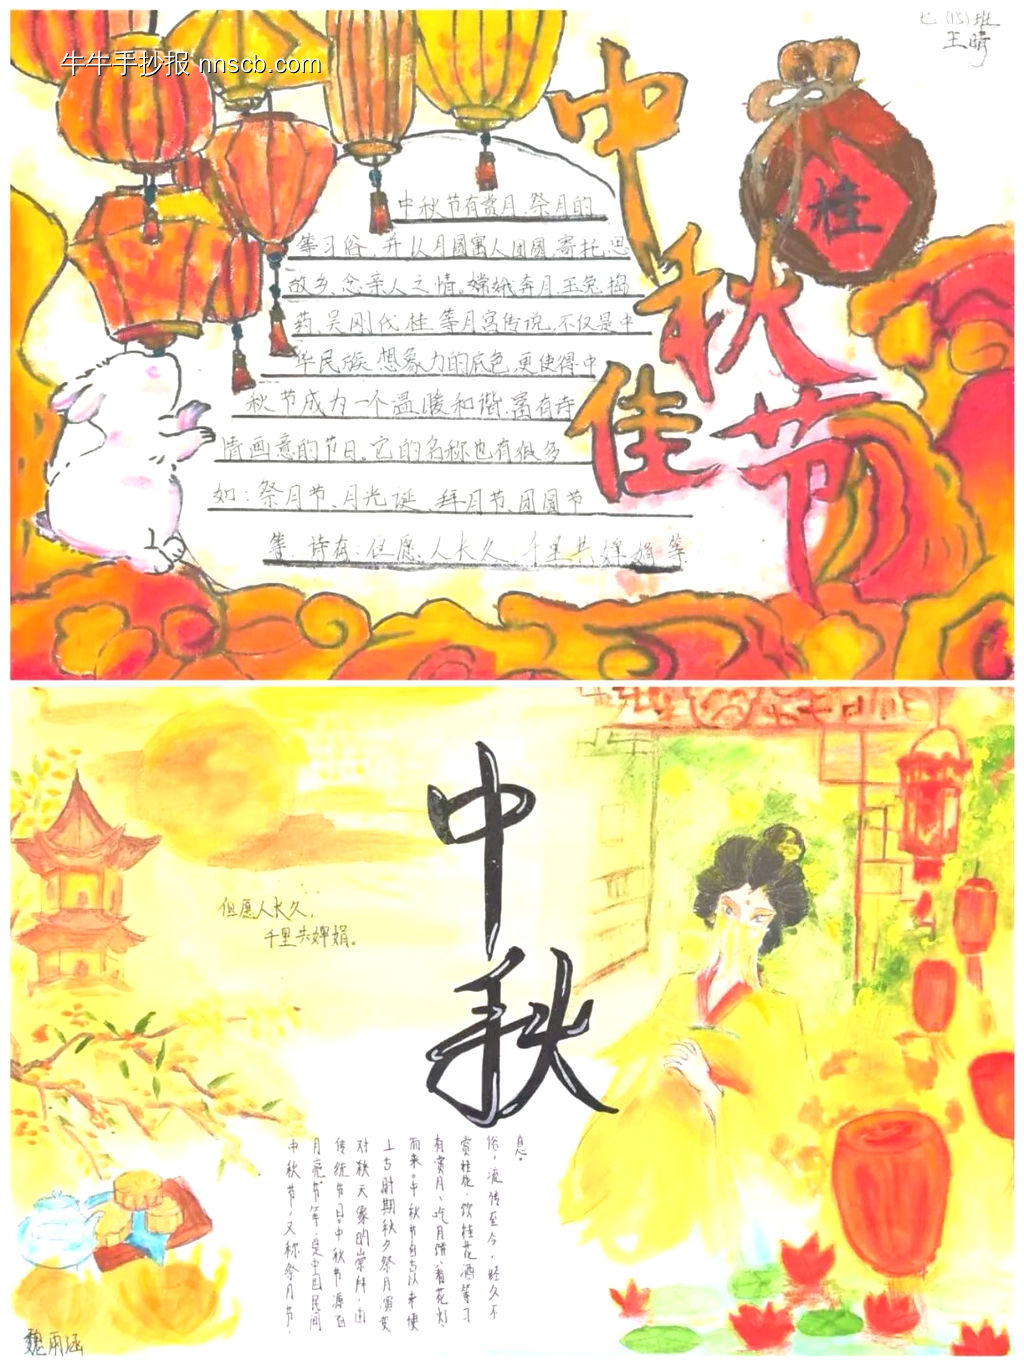 牛牛手抄报 nnscb.com
七(15)班
王晴
中秋佳节
桂
中秋节有赏月、祭月的
等习俗,并以月圆寓人团圆,寄托思
故乡、念亲人之情,嫦娥奔月、玉兔捣
药、吴刚伐桂等月宫传说,不仅是中
华民族想象力的底色,更使得中
秋节成为一个温暖和谐、富有诗
情画意的节日。它的名称也有很多
如:祭月节、月光诞、拜月节、团圆节
等,诗有:但愿人长久,千里共婵娟等
中秋
但愿人长久,
千里共婵娟。
中秋节,又称祭月节、
月亮节等,是中国民间
传统节日。中秋节源自
对秋天象的崇拜,由
上古时期秋夕祭月演变
而来。中秋节自古以来便
有赏月、吃月饼、看花灯、
赏桂花、饮桂花酒等习
俗,流传至今,经久不
息。
魏雨涵